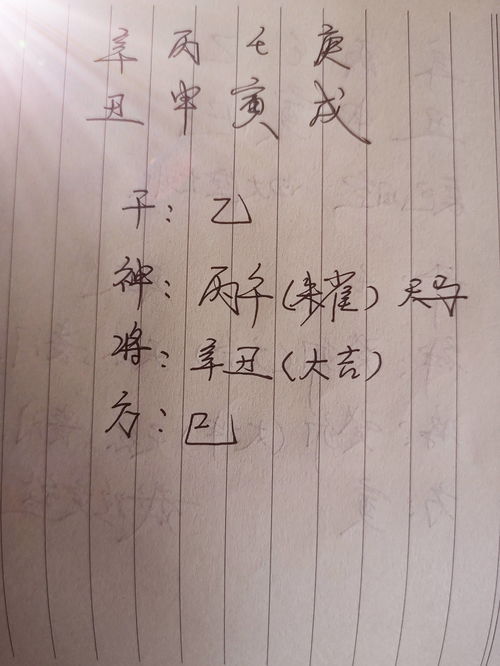 辛 丙 壬 庚
丑 申 寅 戌
干: 乙
神: 丙午(朱雀) 天马
将: 辛丑(大吉)
方: 巳